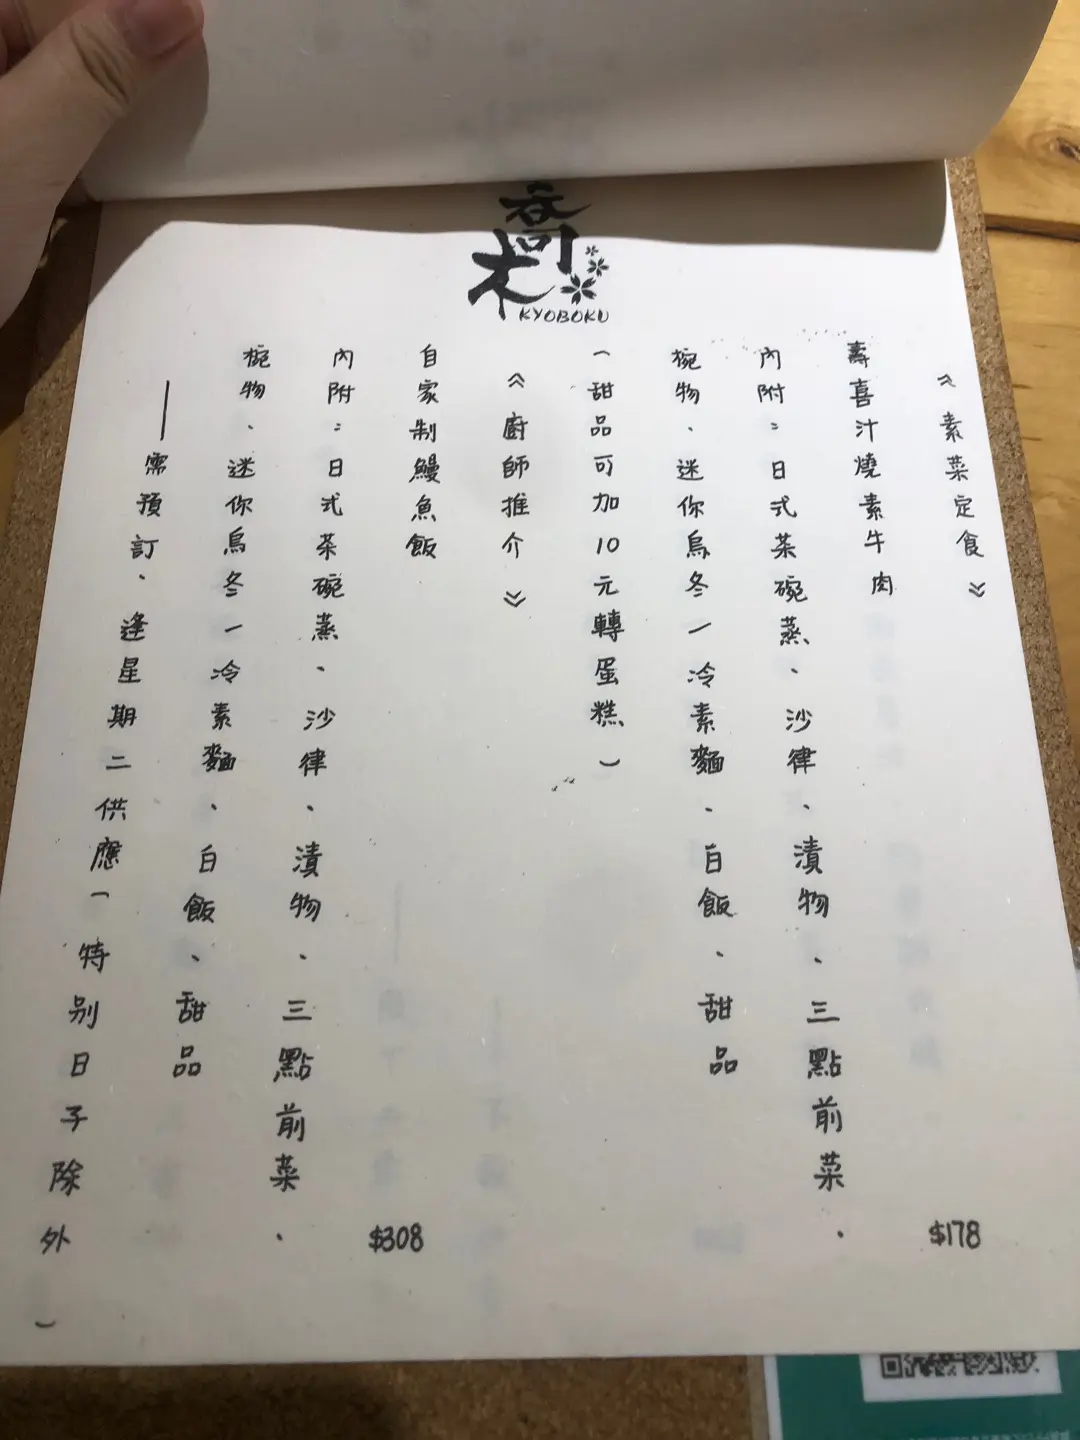 喬木
KYOBOKU
《素菜定食》
$178
壽喜汁燒素牛肉
內附：日式茶碗蒸、沙律、漬物、三點前菜、
椀物、迷你烏冬／冷素麵、白飯、甜品
（甜品可加10元轉蛋糕）
《廚師推介》
自家制鰻魚飯
$308
內附：日式茶碗蒸、沙律、漬物、三點前菜、
椀物、迷你烏冬／冷素麵、白飯、甜品
——需預訂、逢星期二供應（特別日子除外）